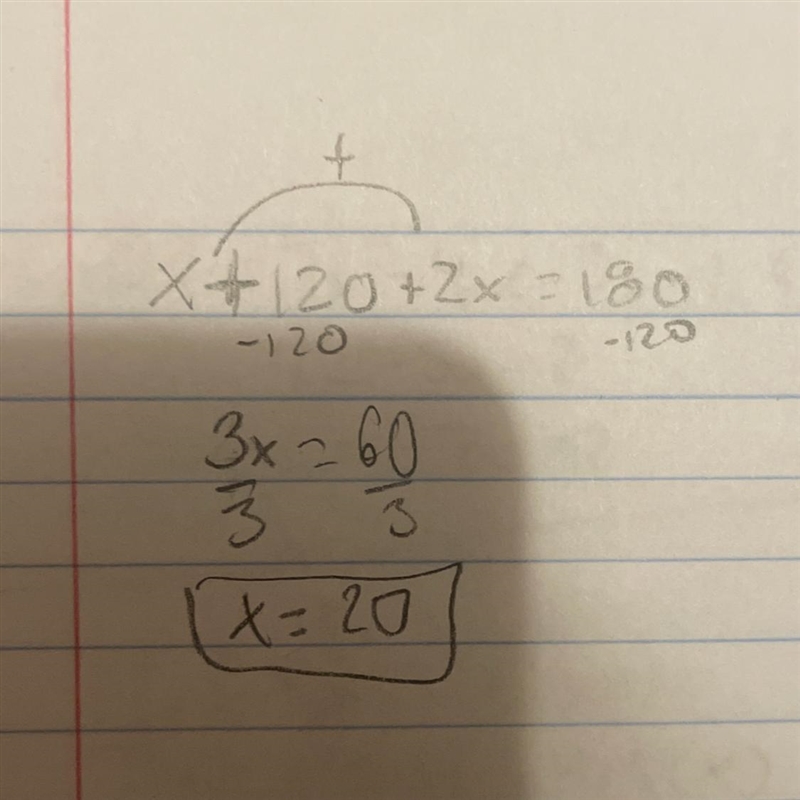 +
x+120+2x=180
-120 -120
3x=60
3 3
x=20